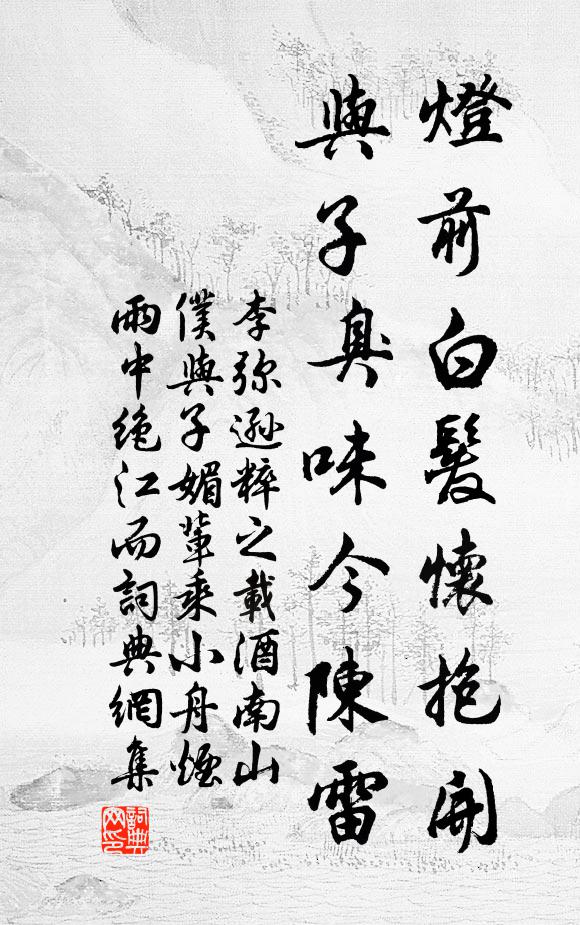 燈前白髮懷抱開
與子臭味今陳雷
李弥遜粹之載酒南山
僕與子媚輩乘小舟煙
雨中绝江而詞典網集
詞典
网印